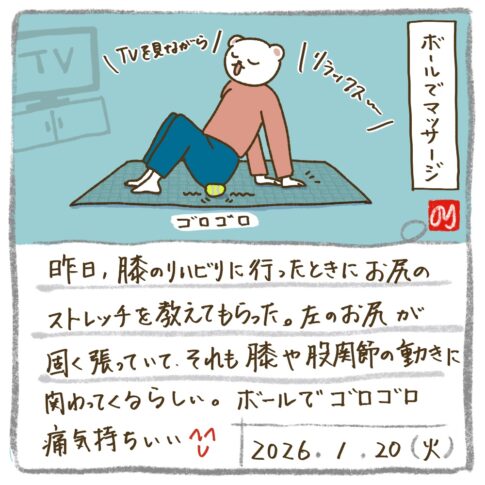 ボールでマッサージ
TVを見ながら
リラックス〜
TV
ゴロゴロ
昨日,膝のリハビリに行ったときにお尻の
ストレッチを教えてもらった。左のお尻が
固く張っていて、それも膝や股関節の動きに
関わってくるらしい。ボールでゴロゴロ
痛気持ちいい
2026.1.20(火)